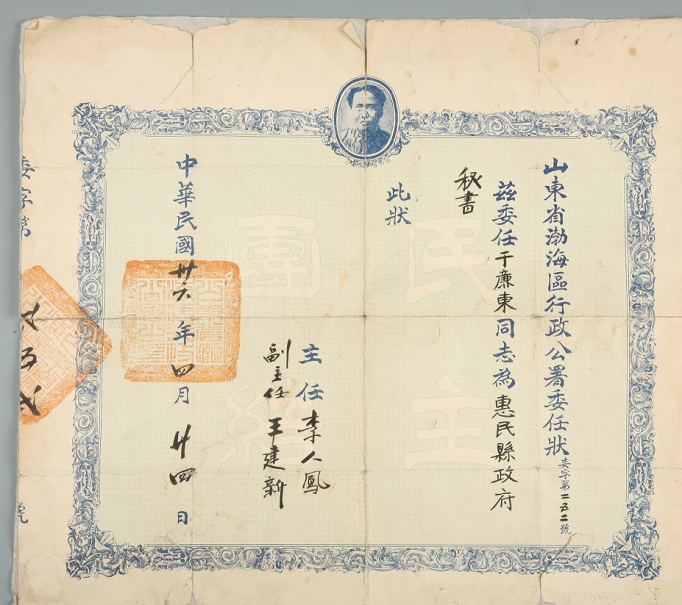 山東省渤海區行政公署委任狀
委字第二五二號
茲委任于廉東同志為惠民縣政府
秘書
此狀
主任李人鳳
副主任王建新
中華民國卅六年四月廿四日
委字第
號
民主
團結